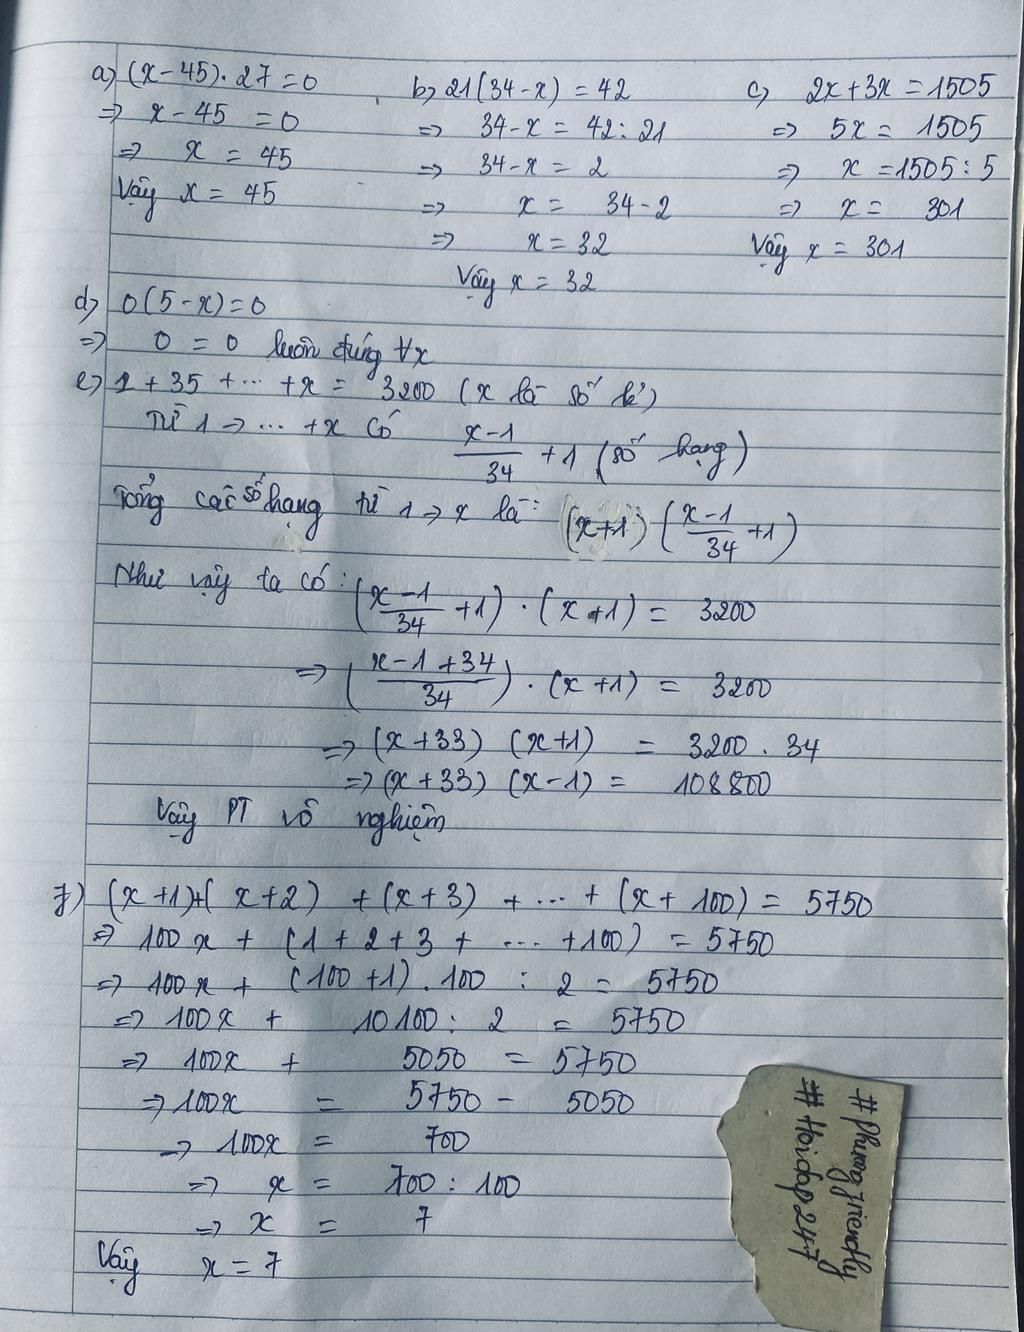 a) (x-45).27=0
=> x-45 =0
=> x = 45
Vậy x = 45
b) 21(34-x) = 42
=> 34-x = 42:21
=> 34-x = 2
=> x = 34-2
=> x = 32
Vậy x = 32
c) 2x+3x=1505
=> 5x = 1505
=> x =1505:5
=> x = 301
Vậy x = 301
d) 0(5-x)=0
=> 0 = 0 luôn đúng ∀x
e) 1+35+...+x = 3200 (x là số lẻ)
Từ 1 -> ... +x có (x-1)/34 +1 (số hạng)
Tổng các số hạng từ 1->x là: (x+1) ((x-1)/34 +1)
Như vậy ta có: ((x-1)/34 +1) . (x+1) = 3200
=> ((x-1+34)/34) . (x+1) = 3200
=> (x+33) (x+1) = 3200 . 34
=> (x+33) (x-1) = 108800
Vậy PT vô nghiệm
f) (x+1)+(x+2) +(x+3) +...+ (x+100) = 5750
=> 100x + (1+2+3+ ... +100) = 5750
=> 100x + (100+1).100 : 2 = 5750
=> 100x + 10100: 2 = 5750
=> 100x + 5050 = 5750
=> 100x = 5750 - 5050
=> 100x = 700
=> x = 700:100
=> x = 7
Vậy x = 7
#phuongfriendly
#Hoidap247